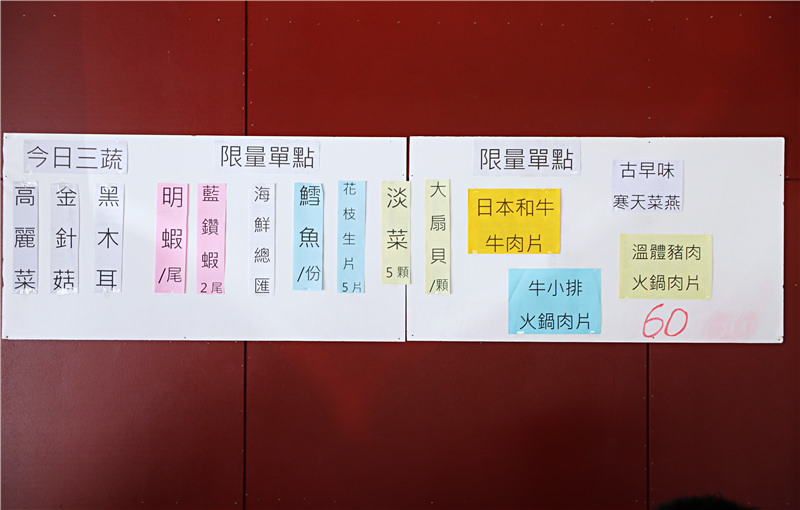 今日三蔬
高麗菜
金針菇
黑木耳
限量單點
明蝦/尾
藍鑽蝦2尾
海鮮總匯
鱈魚/份
花枝生片5片
淡菜5顆
大扇貝/顆
限量單點
日本和牛
牛肉片
牛小排
火鍋肉片
古早味
寒天菜燕
溫體豬肉
火鍋肉片
60